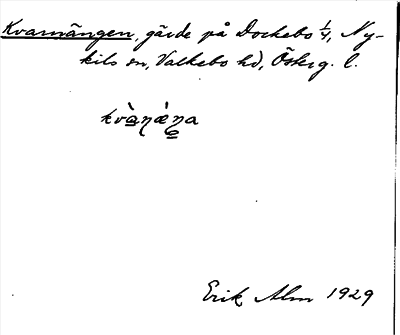 Kvarnängen, gärde på Dockebo 1/4, Ny-
kils sn, Valkebo hd, Österg. l.
Erik Alm 1929